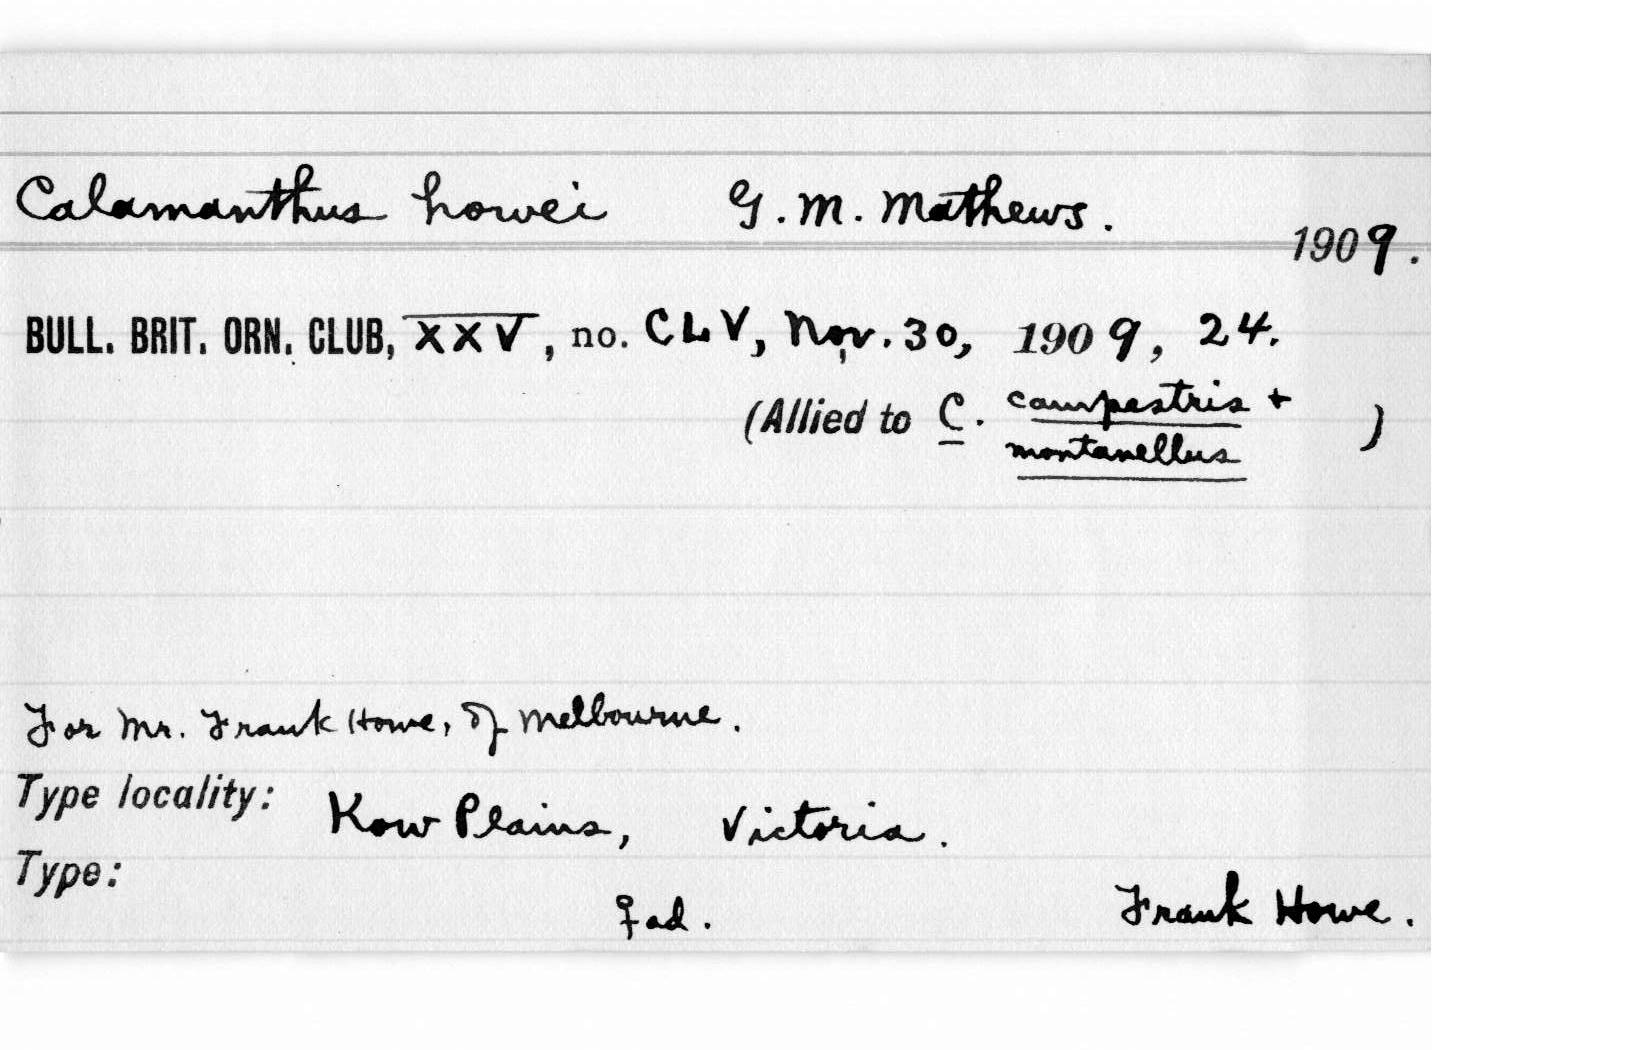 Calamanthus howei G. M. Mathews.
1909.
BULL. BRIT. ORN. CLUB, XXV, no. CLV, Nov. 30, 1909, 24.
(Allied to C. campestris +
montanellus )
For Mr. Frank Howe, of Melbourne.
Type locality: Kow Plains, Victoria.
Type:
♀ ad. Frank Howe.